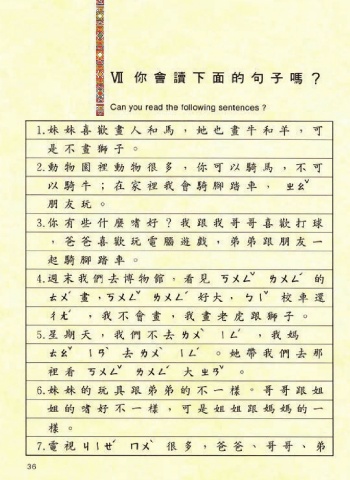 Ⅶ 你會讀下面的句子嗎？
Can you read the following sentences ?
1.妹妹喜歡畫人和馬，她也畫牛和羊，可
是不畫獅子。
2.動物園裡動物很多，你可以騎馬，不可
以騎牛；在家裡我會騎腳踏車，ㄓㄠˇ
朋友玩。
3.你有些什麼嗜好？我跟我哥哥喜歡打球
，爸爸喜歡玩電腦遊戲，弟弟跟朋友一
起騎腳踏車。
4.週末我們去博物館，看見 ㄎㄨㄥˇ ㄌㄨㄥˊ 的
ㄊㄨˊ 畫，ㄎㄨㄥˇ ㄌㄨㄥˊ 好大，ㄅㄧˇ 校車還
ㄔㄤˊ，我不會畫，我畫老虎跟獅子。
5.星期天，我們不去 ㄌㄨˋ ㄧㄥˊ，我媽
ㄊㄠˇ ㄧㄢˋ 去 ㄌㄨˋ ㄧㄥˊ。她帶我們去那
裡看 ㄎㄨㄥˇ ㄌㄨㄥˊ 大
6.妹妹的玩具跟弟弟的不一樣。哥哥跟姐
姐的嗜好不一樣，可是姐姐跟媽媽的一
樣。
7.電視 ㄐㄧㄝˊ ㄇㄨˋ 很多，爸爸、哥哥、弟
36